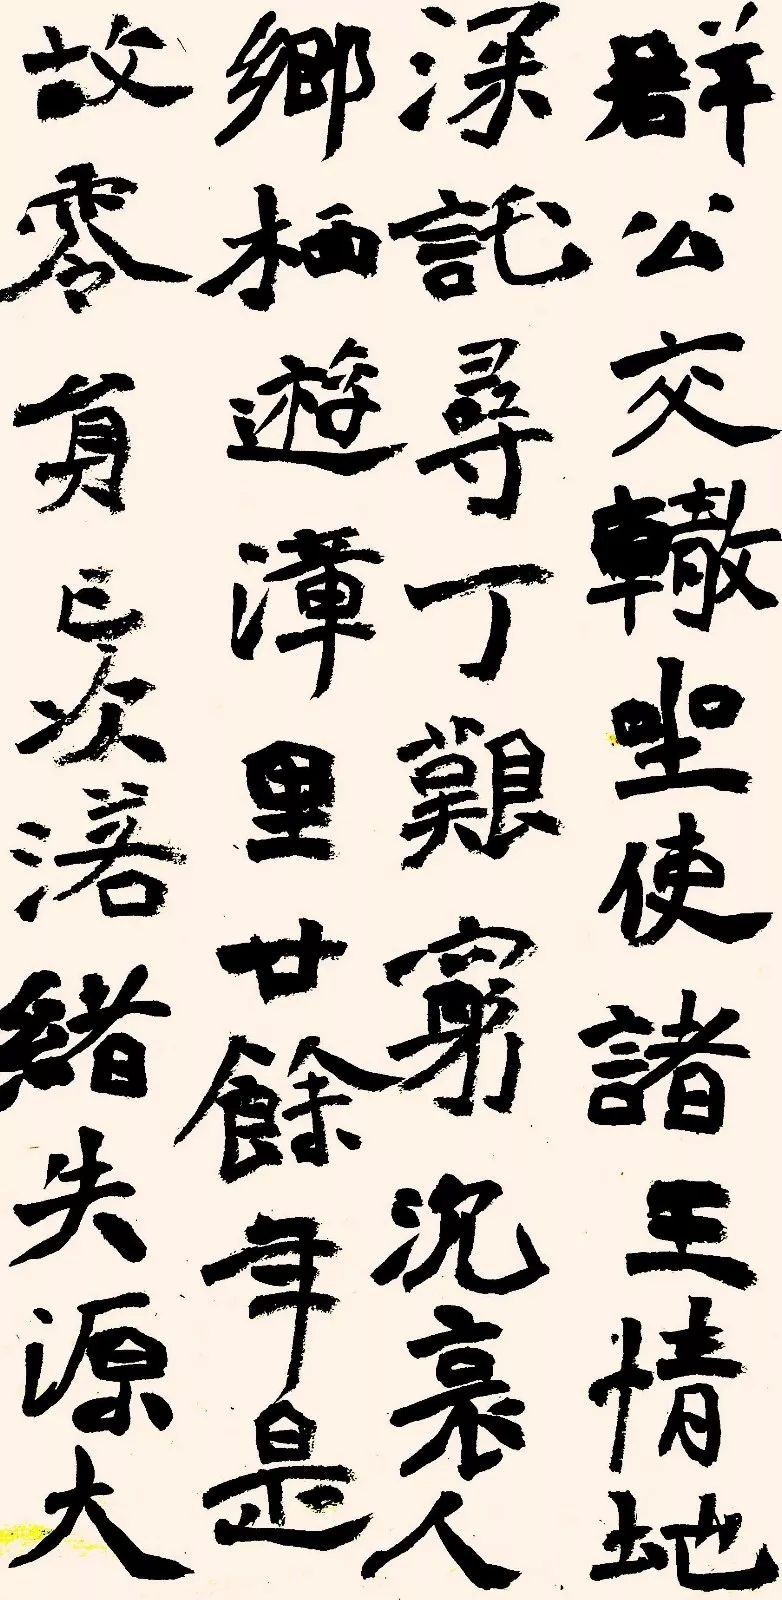 群公交轍坐使諸王情地
深託尋丁艱窮沉哀人
鄉栖遊漳里廿餘年是
故零員已次落緒失源大